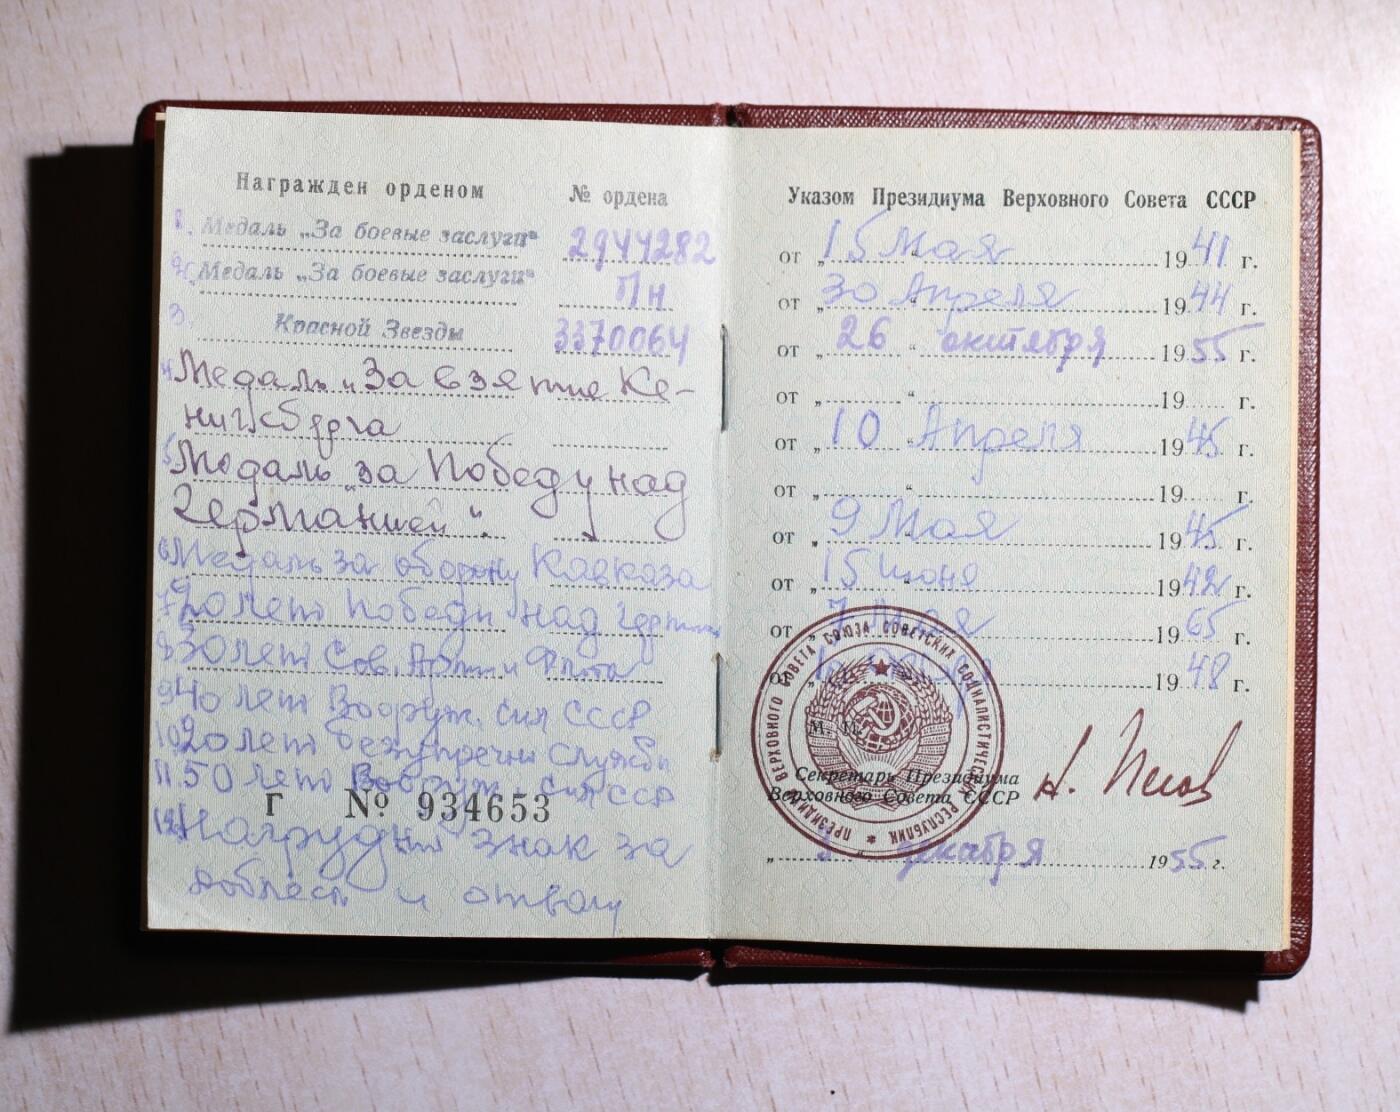 Награжден орденом № ордена
1. Медаль „За боевые заслуги“ 2944282
2. Медаль „За боевые заслуги“ Пн
3. Красной Звезды 3370064
4 Медаль „За взятие Ке-
нигсберга
5 Медаль „за Победу над
Германией“.
6 Медаль за оборону Кавказа
7 20 лет Победи над
8 30 лет Сов. Арми и Флота
9 40 лет Вооруж. сил СССР
10 20 лет безупречни Службы
11. 50 лет Вооруж. сил СССР
Г № 934653
12 Нагрудный знак за
доблесть и отвагу
Указом Президиума Верховного Совета СССР
от „15 Мая 1941 г.
от „30 “ Апреля 1944 г.
от „26 “ октября 1955 г.
от „ “ 19 г.
от „10 “ Апреля 1945 г.
от „ “ 19 г.
от „9 Мая 1945 г.
от „15 “ июня 1942 г.
от „7 Мая 1965 г.
от „ 1948 г.
М. П.
ПРЕЗИДИУМ ВЕРХОВНОГО СОВЕТА СОЮЗА СОВЕТСКИХ СОЦИАЛИСТИЧЕСКИХ РЕСПУБЛИК
Секретарь Президиума
Верховного Совета СССР
„ “ декабря 1955 г.